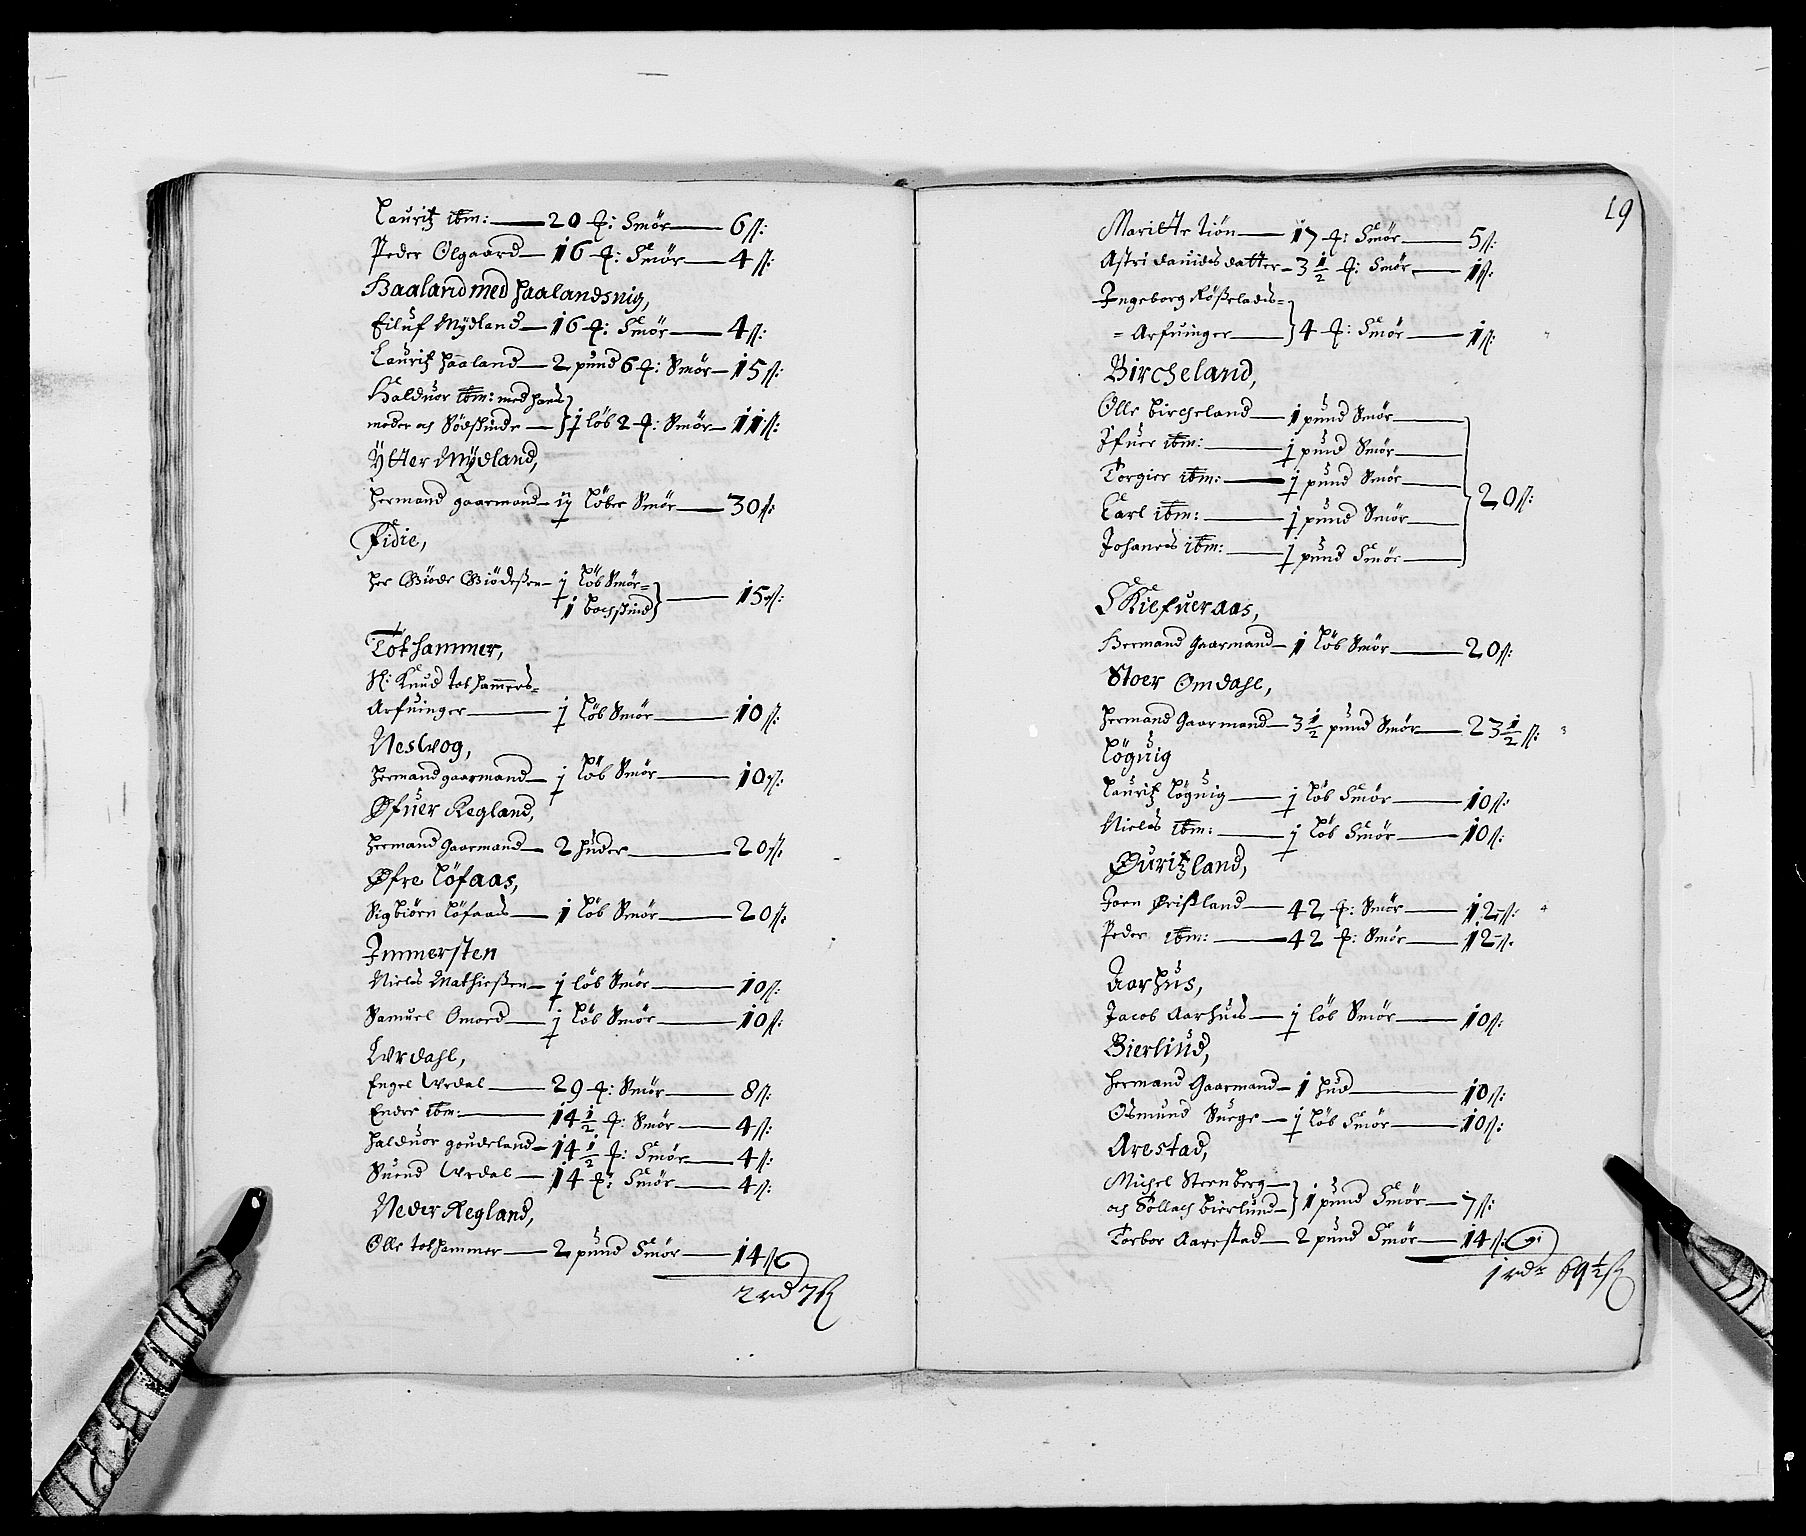 Lauritz ibm: — 20 ₰: Smör — 6 ß:
Peder Olgaard — 16 ₰: Smör — 4 ß:
Haaland med haalandsuig,
Eiluf Mÿdland — 16 ₰: Smör — 4 ß:
Lauritz haaland — 2 pund 6 ₰: Smör — 15 ß:
Halduor ibm: med hans
moder och Södskinde — } 1 löb 2 ₰: Smör — 11 ß:
Ÿtter Mÿdland,
Hermand gaarmand — ij Löber Smör — 30 ß:
Fidie,
Her Giöde Giödeßen — 1 Löb Smör =
1 bochskind } — 15 ß:
Tothammer,
Sl: Knud tothammers =
Arfuinger — 1 Löb Smör — 10 ß:
Neswog,
Hermand gaarmand — 1 Löb Smör — 10 ß:
Øfuer Regland,
Hermand Gaarmand — 2 huder — 20 ß:
Øfre Löfaas,
Sigbiörn Löfaas — 1 Löb Smör — 20 ß:
Immersten
Niels Mathießen — 1 löb Smör — 10 ß:
Samuel Omord — 1 Löb Smör — 10 ß:
Wrdahl,
Engel Wrdal — 29 ₰: Smör — 8 ß:
Ender ibm: — 14 1/2 ₰: Smör — 4 ß:
Halduor goudeland — 14 1/2 ₰: Smör — 4 ß:
Suend Wrdal — 14 ₰: Smör — 4 ß:
Neder Regland,
Olle tothammer — 2 pund Smör — 14 ß
2 rd 7 ß
19
Maritte Tiön — 17 ₰: Smör — 5 ß:
Astri dauids datter — 3 1/2 ₰: Smör — 1 ß:
Ingeborg Rößelads =
= Arfuinger — } 4 ₰: Smör — 1 ß:
Bircheland,
Olle bircheland — 1 pund Smör —
Ifuer ibm: — 1 pund Smör —
Torgier ibm: — 1 pund Smör —
Carl ibm: — 1 pund Smör — } 20 ß:
Johanes ibm: — 1 pund Smör —
Skiefueraas,
Hermand Gaarmand — 1 Löb Smör — 20 ß:
Stoer Omdahl,
Hermand Gaarmand — 3 1/2 pund Smör — 23 1/2 ß:
Löguig
Lauritz Löguig — 1 Löb Smör — 10 ß:
Niels ibm: — 1 Löb Smör — 10 ß:
Øuritzland,
Joen Ørißland — 42 ₰: Smör — 12 ß:
Peder ibm: — 42 ₰: Smör — 12 ß:
Aarhus,
Jacob Aarhus — 1 löb Smör — 10 ß:
Bierliud,
Hermand Gaarmand — 1 hud — 10 ß:
Osmund Surge — 1 Löb Smör — 10 ß:
Arestad,
Michel Sternberg —
och Tollach bierlund — } 1 pund Smör — 7 ß:
Torbor Aarestad — 2 pund Smör — 14 ß:
1 rdr 69 1/2 ß